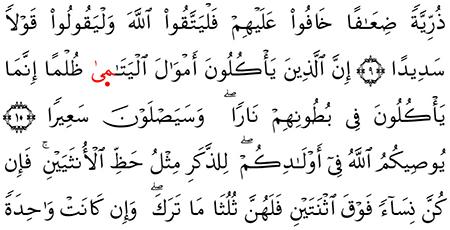 ذُرِّيَّةً ضِعَـٰفًا خَافُوا۟ عَلَيْهِمْ فَلْيَتَّقُوا۟ ٱللَّهَ وَلْيَقُولُوا۟ قَوْلًا
سَدِيدًا ۝٩ إِنَّ ٱلَّذِينَ يَأْكُلُونَ أَمْوَٰلَ ٱلْيَتَـٰمَىٰ ظُلْمًا إِنَّمَا
يَأْكُلُونَ فِى بُطُونِهِمْ نَارًا ۖ وَسَيَصْلَوْنَ سَعِيرًا ۝١٠
يُوصِيكُمُ ٱللَّهُ فِىٓ أَوْلَـٰدِكُمْ ۖ لِلذَّكَرِ مِثْلُ حَظِّ ٱلْأُنثَيَيْنِ ۚ فَإِن
كُنَّ نِسَآءً فَوْقَ ٱثْنَتَيْنِ فَلَهُنَّ ثُلُثَا مَا تَرَكَ ۖ وَإِن كَانَتْ وَٰحِدَةً